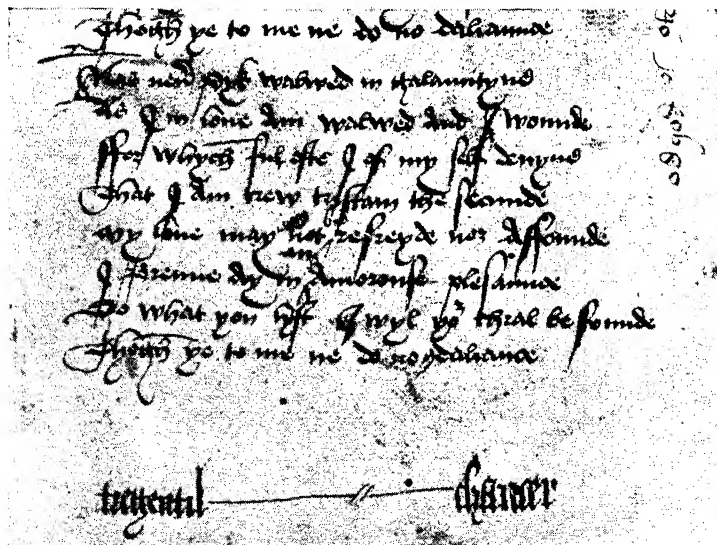 Thogh ye to me ne do no daliaunce
Nas neu' pyk walwed in galauntyne
As I in loue am walwed and I wounde
ffor whych ful ofte I of my self deuyne
That I am trew tristam the secunde
My loue may not be refreyde nor affounde
I brenne ay in an amorouse plesaunce
Do what you lyst I wyl yor thral be founde
Thogh ye to me ne do no daliance
tregentil // chaucer